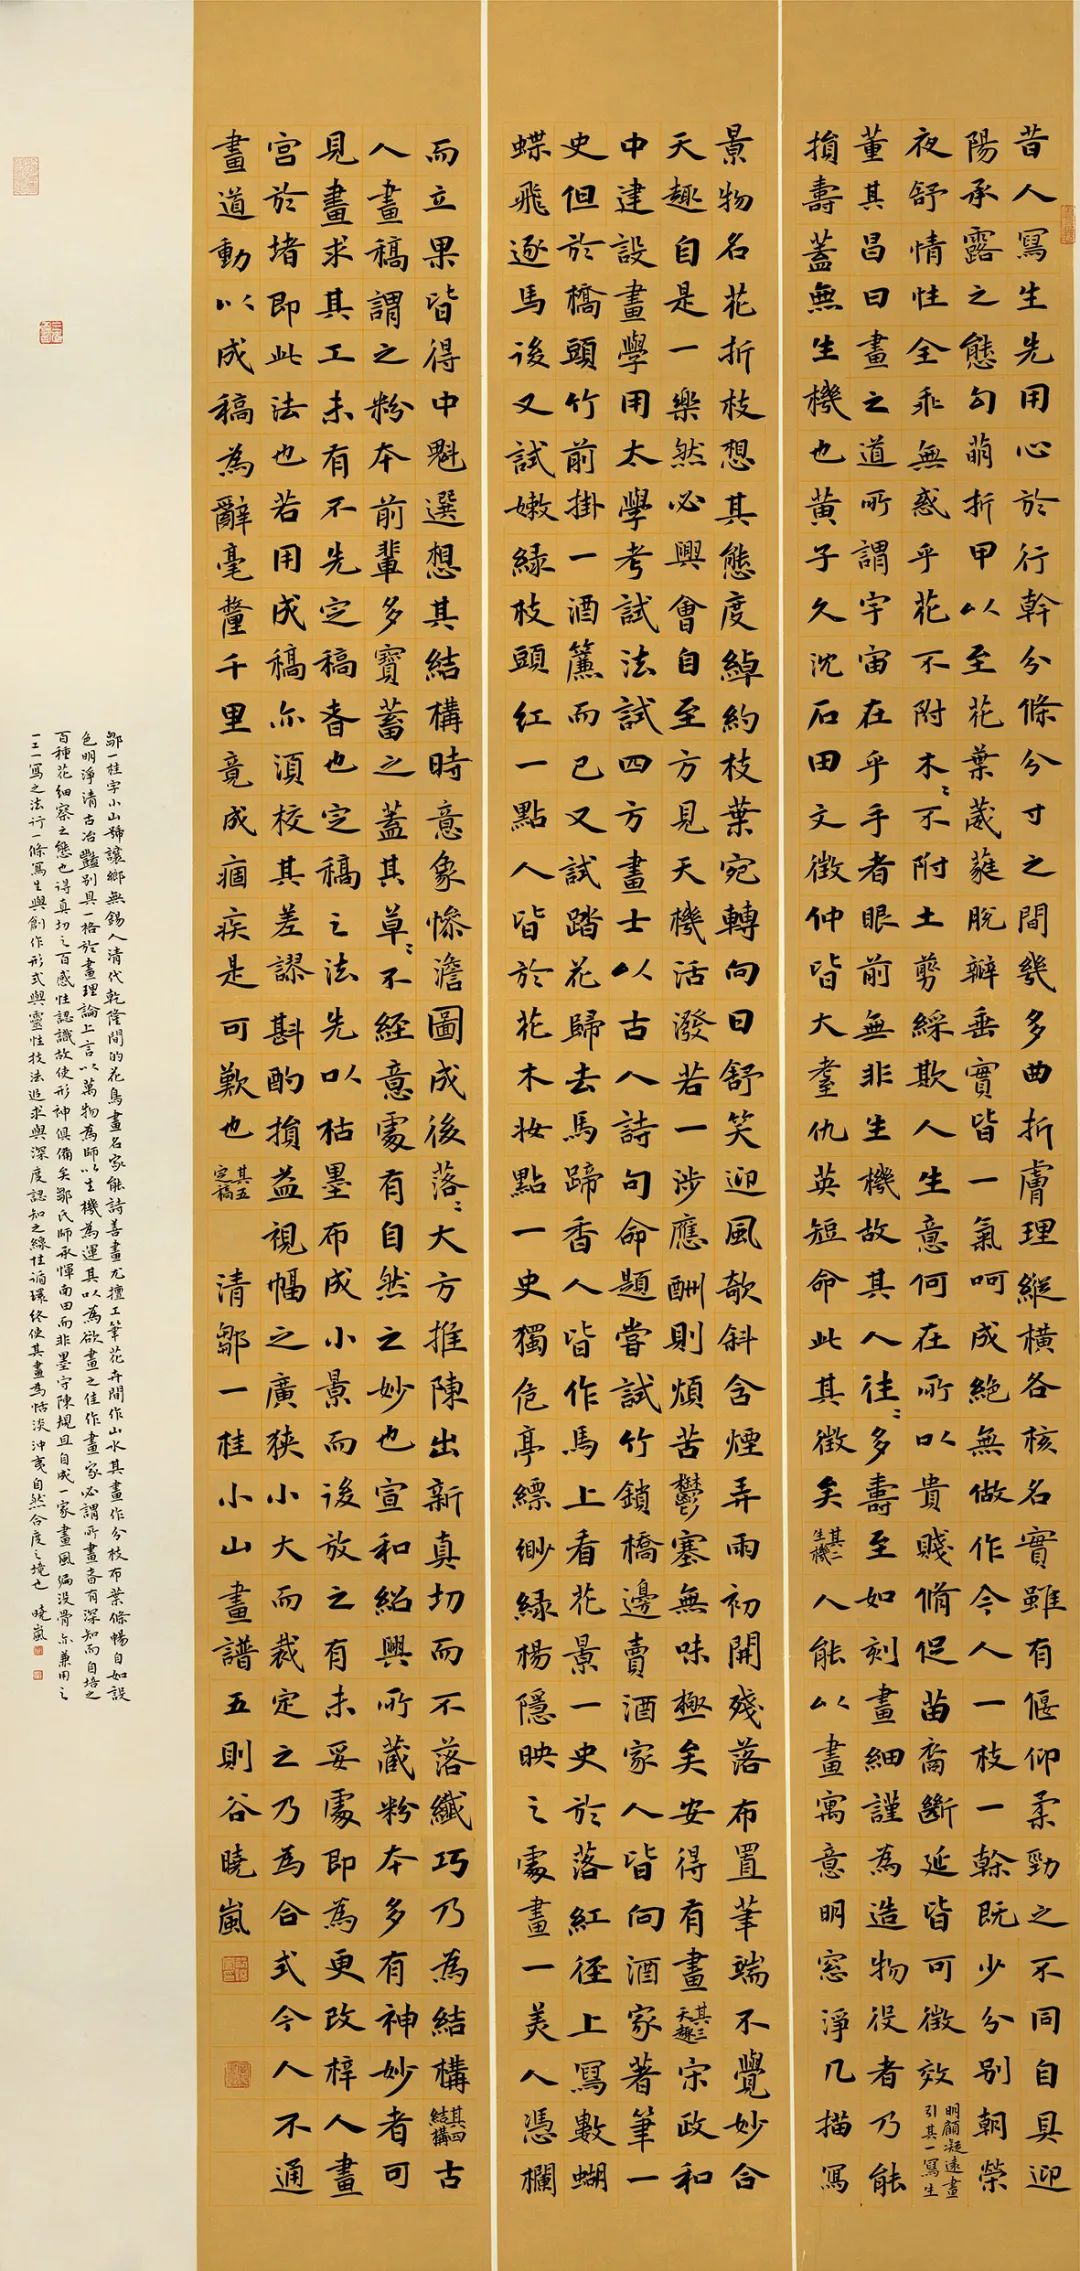 昔人寫生先用心於行幹分條分寸之間幾多曲折膚理縱橫各核名實雖有偃仰柔勁之不同自具迎
陽承露之態勾萌折甲以至花葉葳蕤脫瓣垂實皆一氣呵成絕無做作今人一枝一榦既少分別朝榮
夜舒情性全乖無惑乎花不附木〻不附土剪綵欺人生意何在所以貴賤脩促苗裔斷延皆可徵效明顧凝遠畫引其一寫生
董其昌曰畫之道所謂宇宙在乎手者眼前無非生機故其人往〻多壽至如刻畫細謹為造物役者乃能
損壽蓋無生機也黃子久沈石田文徵仲皆大耋仇英短命此其徵矣其二生機人能以畫寓意明窓淨几描寫
景物名花折枝想其態度綽約枝葉宛轉向日舒笑迎風欹斜含煙弄雨初開殘落布置筆端不覺妙合
天趣自是一樂然必興會自至方見天機活潑若一涉應酬則煩苦鬱塞無味極矣安得有畫其三天趣宋政和
中建設畫學用太學考試法試四方畫士以古人詩句命題嘗試竹鎖橋邊賣酒家人皆向酒家著筆一
史但於橋頭竹前掛一酒簾而已又試踏花歸去馬蹄香人皆作馬上看花景一史於落紅徑上寫數蝴
蝶飛逐馬後又試嫩綠枝頭紅一點人皆於花木妝點一史獨危亭縹緲綠楊隱映之處畫一美人憑欄
而立果皆得中魁選想其結構時意象慘澹圖成後落〻大方推陳出新真切而不落纖巧乃為結構其四結構古
人畫稿謂之粉本前輩多寶蓄之蓋其草〻不經意處有自然之妙也宣和紹興所藏粉本多有神妙者可
見畫求其工未有不先定稿者也定稿之法先以枯墨布成小景而後放之有未妥處即為更改梓人畫
宮於堵即此法也若用成稿亦須校其差謬斟酌損益視幅之廣狹小大而裁定之乃為合式今人不通
畫道動以成稿為辭毫釐千里竟成痼疾是可歎也其五定稿 清鄒一桂小山畫譜五則谷曉嵐
鄒一桂字小山號讓鄉無錫人清代乾隆間的花鳥畫名家能詩善畫尤擅工筆花卉間作山水其畫作分枝布葉條暢自如設
色明淨清古冶豔別具一格於畫理論上言以萬物為師以生機為運其以為欲畫之佳作畫家必謂所畫者有深知而自培之
百種花細察之態也得真切之百感性認識故使形神俱備矣鄒氏師承惲南田而非墨守陳規且自成一家畫風偏沒骨亦兼用之
一工一寫之法行一條寫生與創作形式與靈性技法追求與深度認知之線性循環終使其畫為恬淡沖夷自然合度之境也 曉嵐